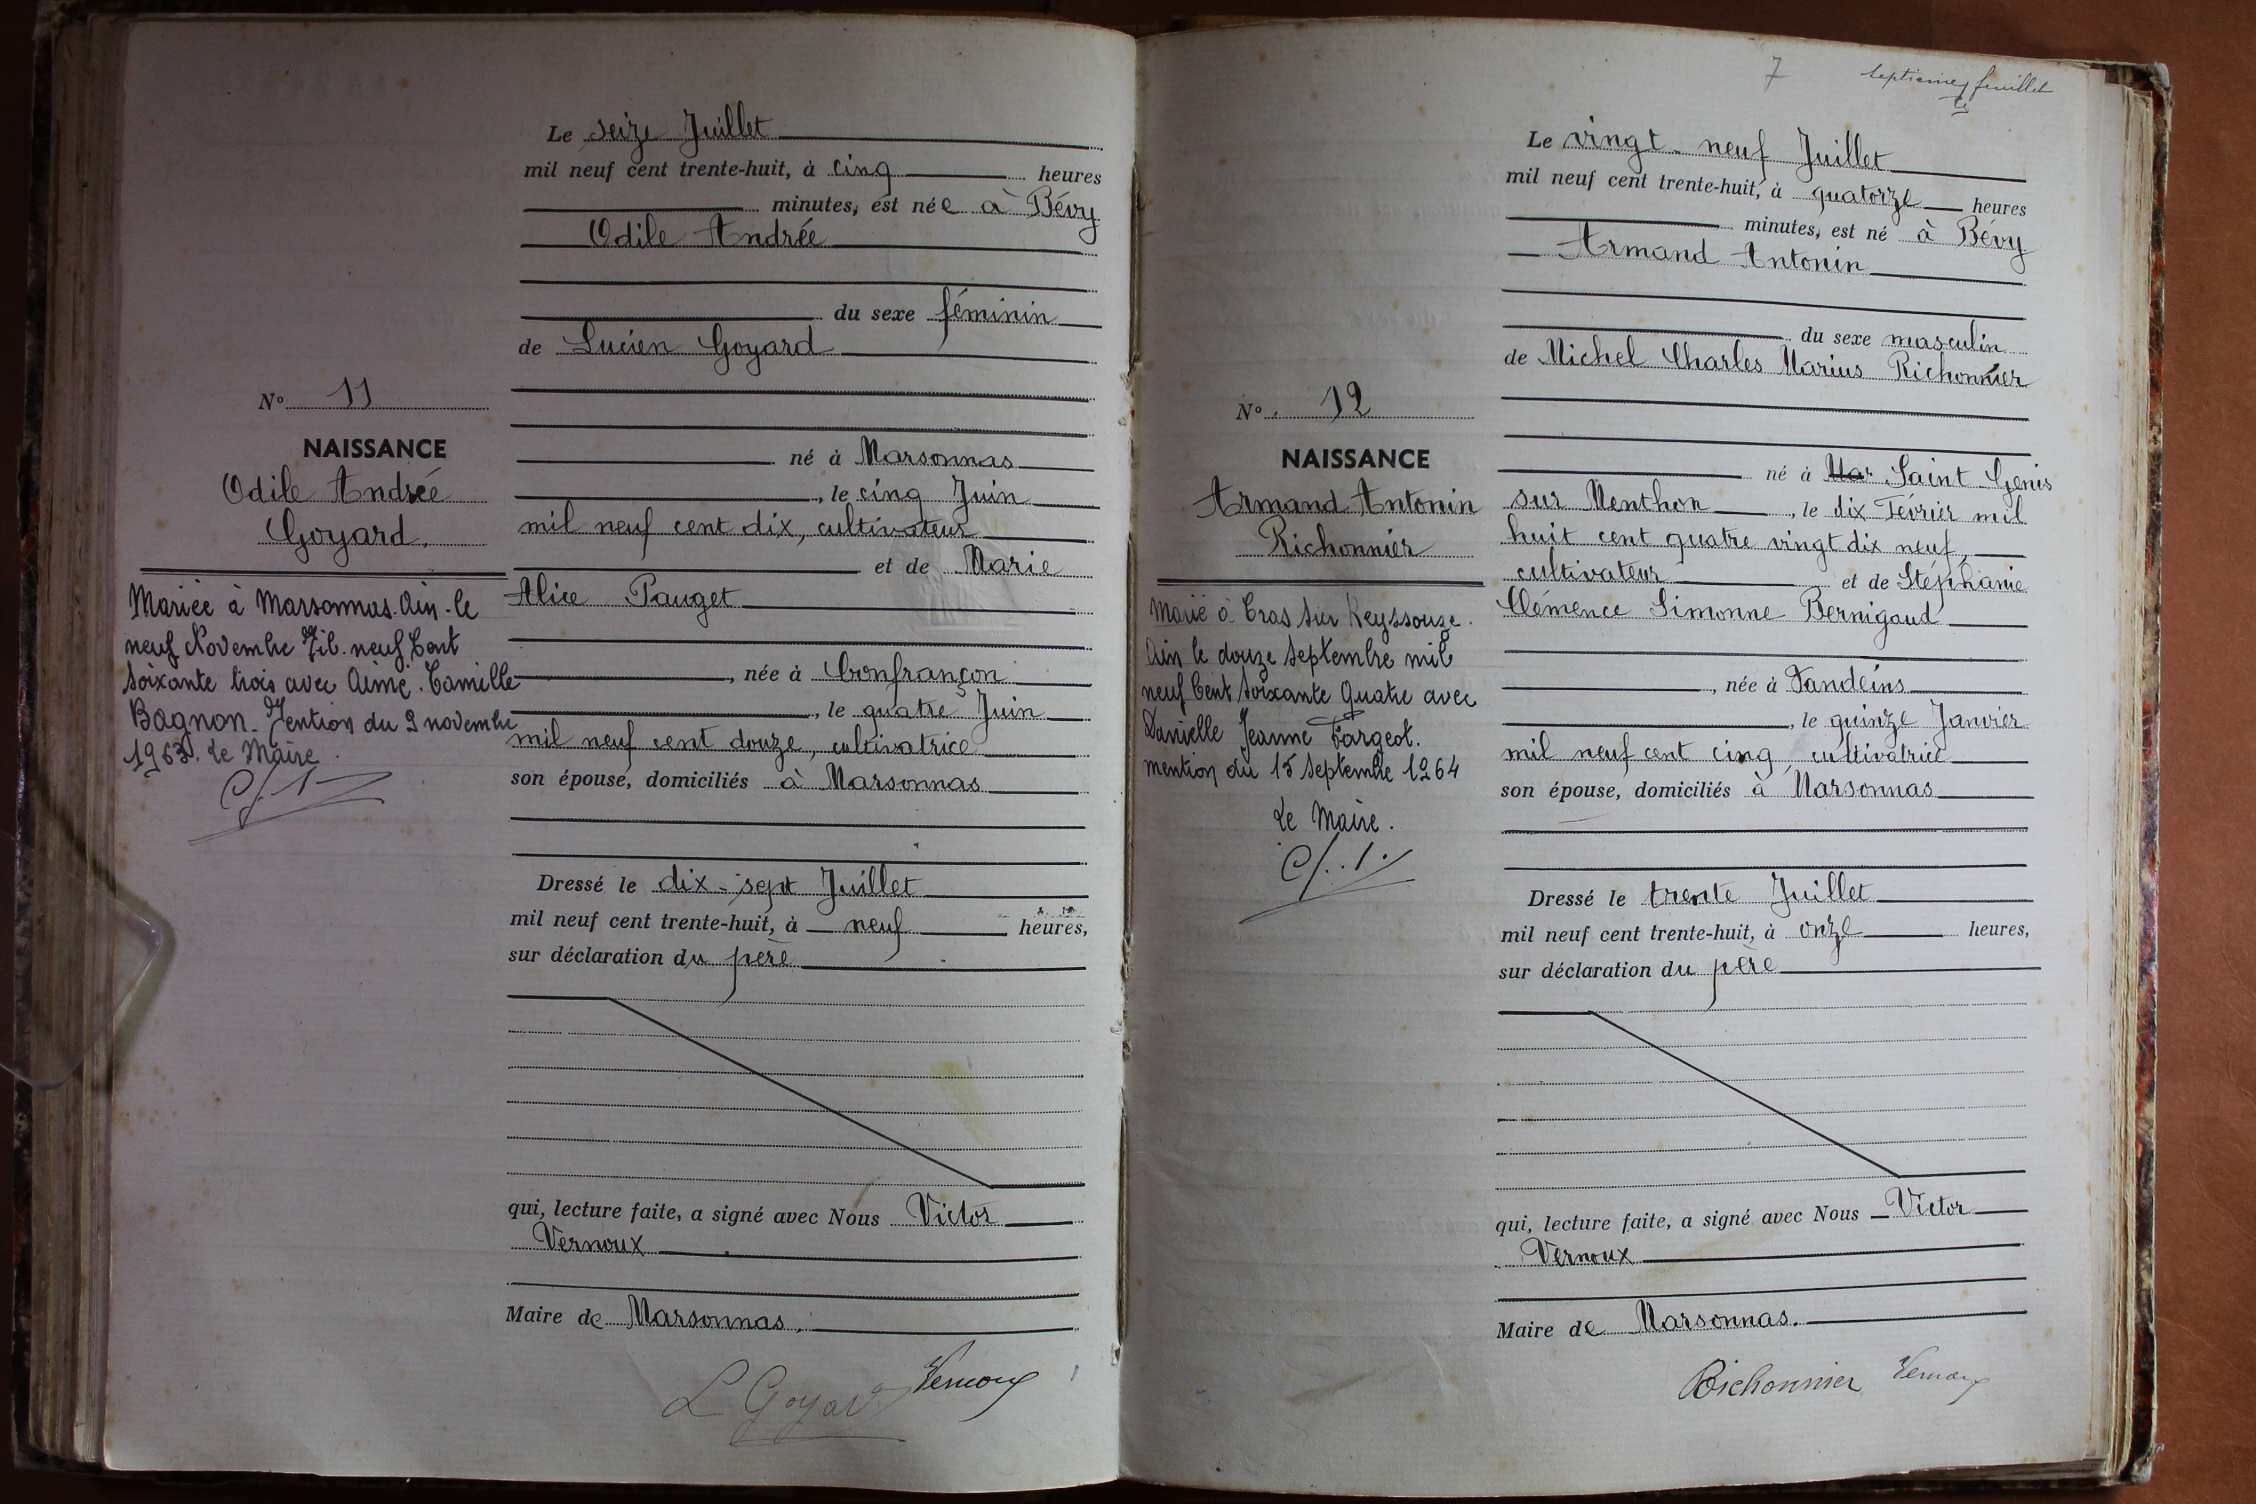 Le seize Juillet
mil neuf cent trente-huit, à cinq heures
minutes, est née à Bévy
Odile Andrée
du sexe féminin
de Lucien Goyard
né à Marsonnas
, le cinq Juin
mil neuf cent dix, cultivateur
et de Marie
Alice Pauget
, née à Confrançon
, le quatre Juin
mil neuf cent douze, cultivatrice
son épouse, domiciliés à Marsonnas
Dressé le dix-sept Juillet
mil neuf cent trente-huit, à neuf heures,
sur déclaration du père
qui, lecture faite, a signé avec Nous Victor
Vernoux
Maire de Marsonnas.
L Goyard Vernoux
N° 11
NAISSANCE
Odile Andrée
Goyard.
Mariée à Marsonnas. Ain. le
neuf Novembre Mil. neuf Cent
soixante trois avec Aimé. Camille
Bagnon. Mention du 9 novembre
1963. Le Maire.
7 septième feuillet
Le vingt-neuf Juillet
mil neuf cent trente-huit, à quatorze heures
minutes, est né à Bévy
Armand Antonin
du sexe masculin
de Michel Charles Marius Richonnier
né à Mar Saint Genis
sur Menthon , le dix Février mil
huit cent quatre vingt dix neuf,
cultivateur et de Stéphanie
Clémence Simonne Bernigaud
, née à Vandeins
, le quinze Janvier
mil neuf cent cinq, cultivatrice
son épouse, domiciliés à Marsonnas
Dressé le trente Juillet
mil neuf cent trente-huit, à onze heures,
sur déclaration du père
qui, lecture faite, a signé avec Nous Victor
Vernoux
Maire de Marsonnas.
Richonnier Vernoux
N° 12
NAISSANCE
Armand Antonin
Richonnier
Marié à Cras sur Reyssouze.
Ain le douze septembre mil
neuf Cent soixante Quatre avec
Danielle Jeanne Fargeot.
mention du 15 septembre 1964
Le Maire.